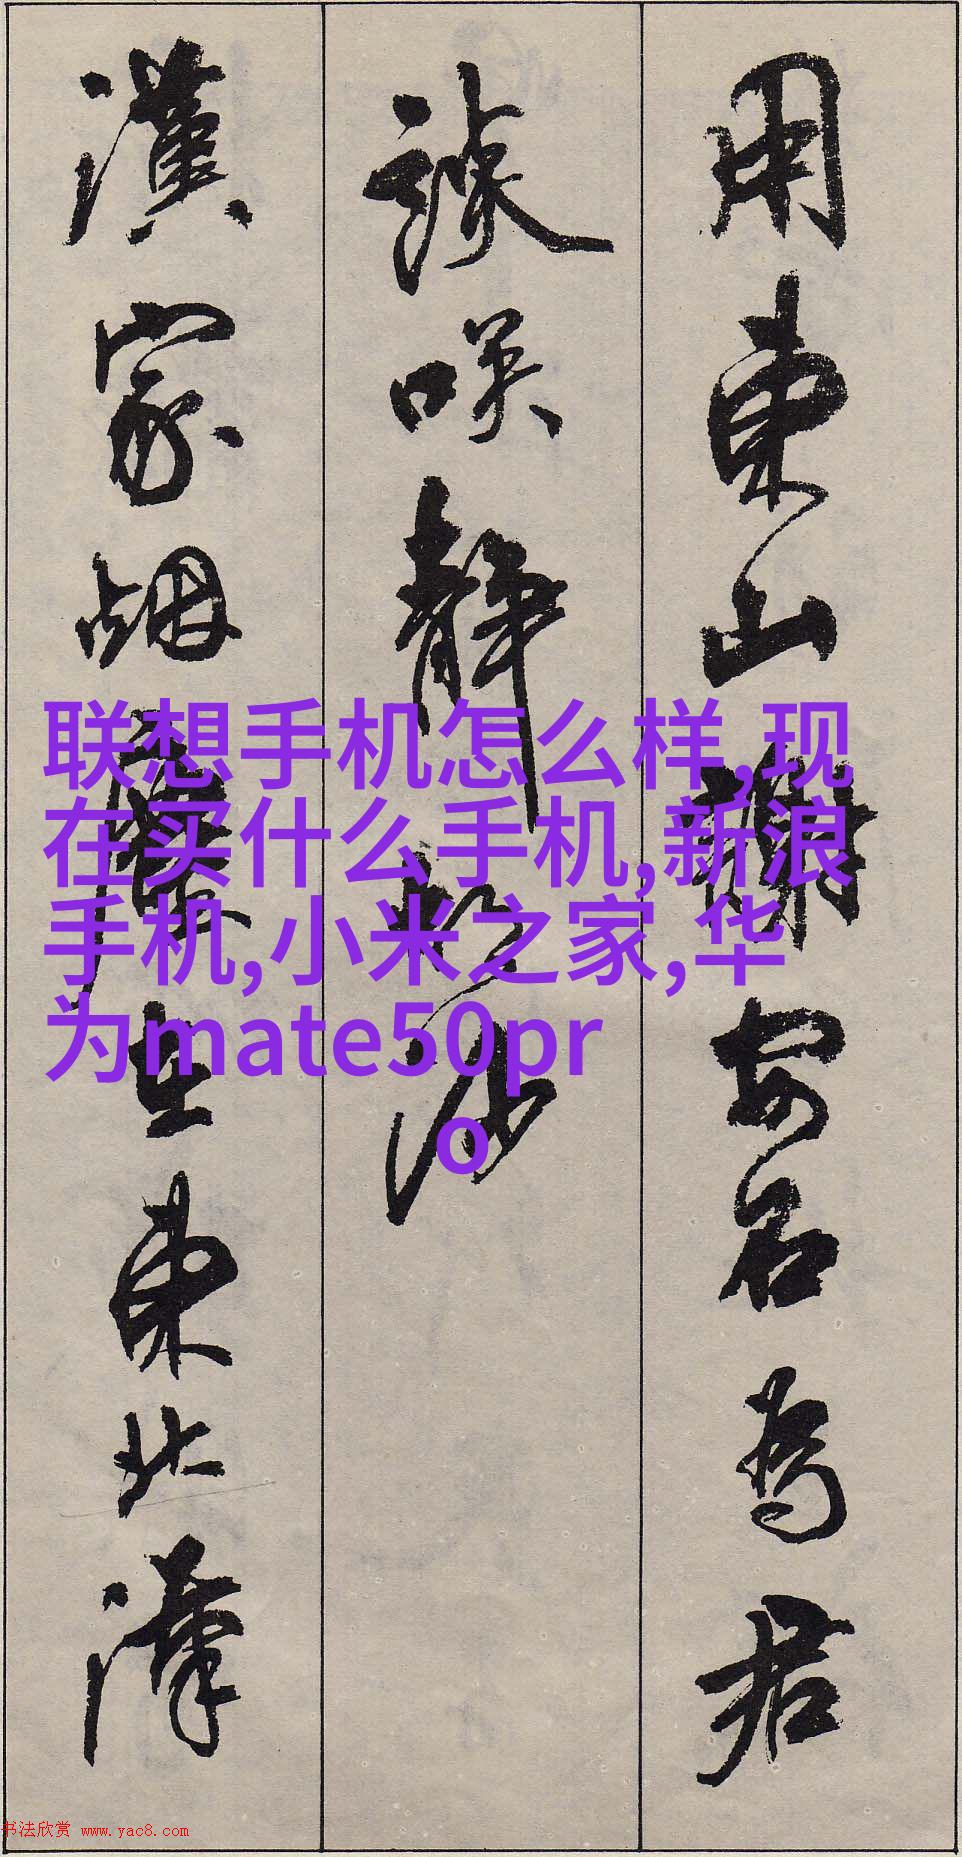 用東山謝安石為君
談咲靜胡沙
漢家烟塵在東北漢
联想手机怎么样,现
在买什么手机,新浪
手机,小米之家,华
为mate50pr
o
书法欣赏 www.yac8.com